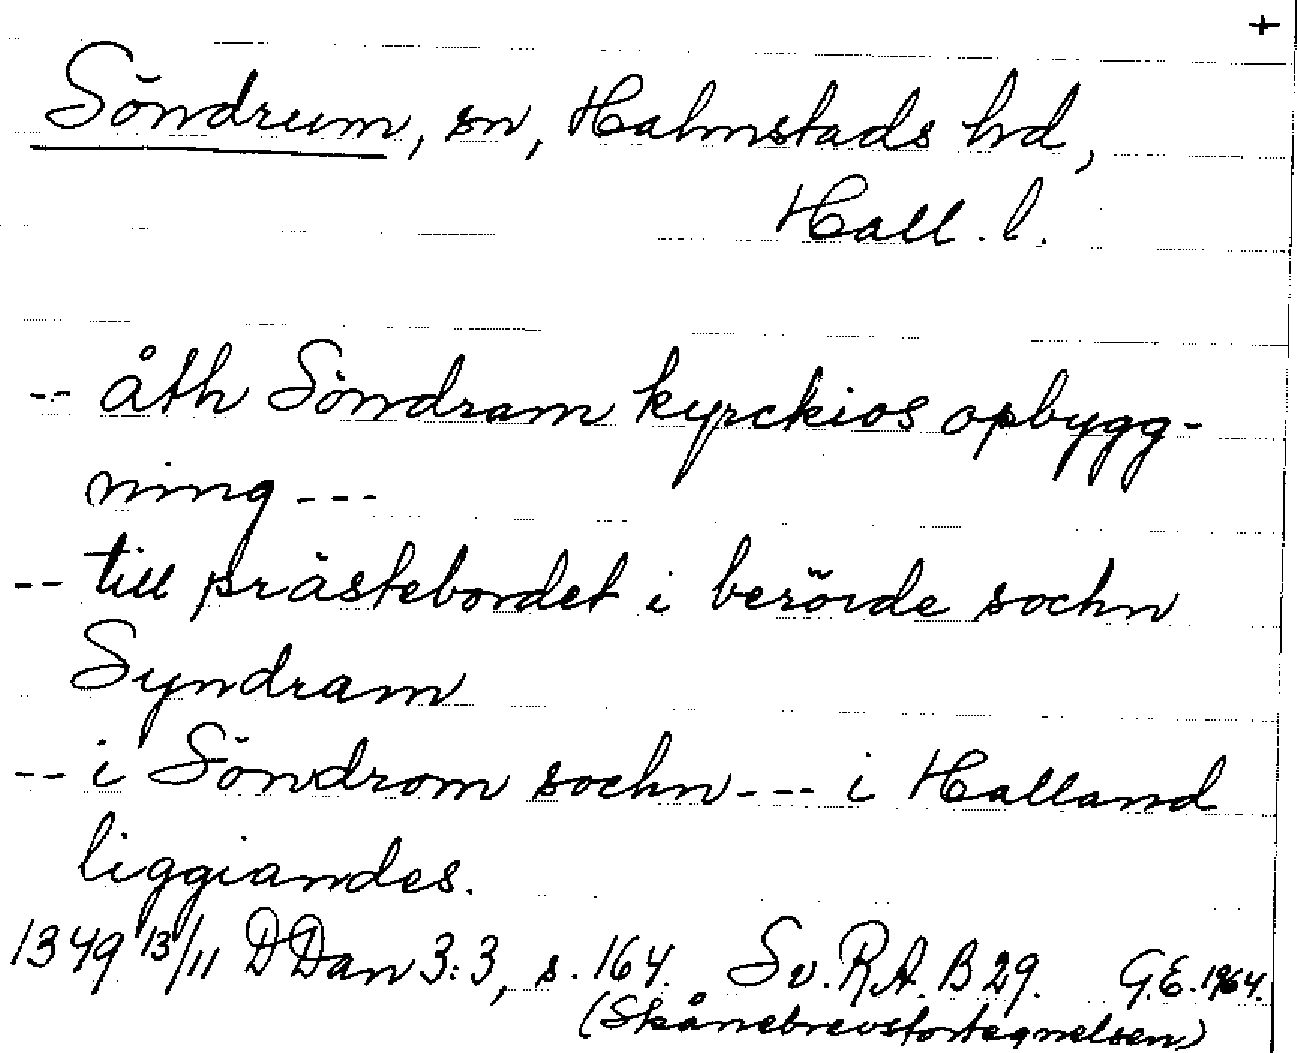 +
Söndrum, sn, Halmstads hd,
Hall. l.
-- åth Söndram kyrckios opbygg-
ning ---
-- till prästebordet i berörde sochn
Syndram
-- i Söndrom sochn --- i Halland
liggiandes.
1349 13/11 DDan 3:3, s. 164. Sv. R.A. B 29. G.E. 1964.
(Skånebrevsfortegnelsen)